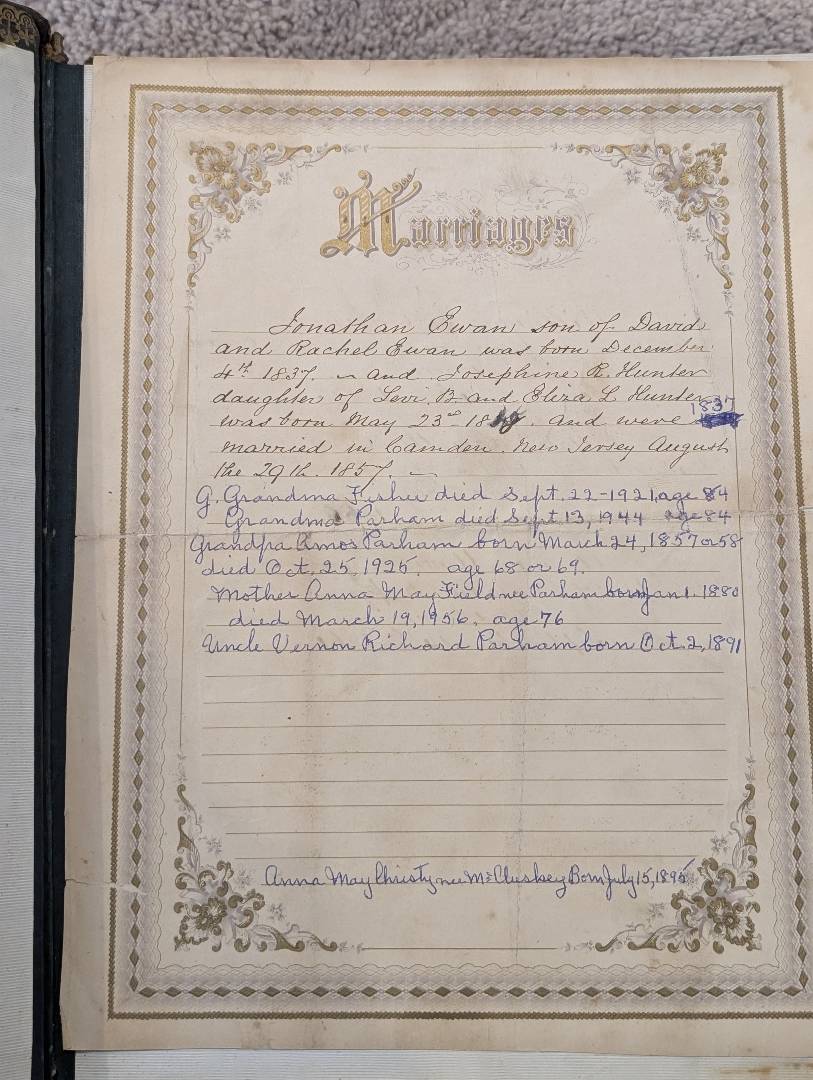 Marriages
Jonathan Ewan son of David
and Rachel Ewan was born December
4th 1837. and Josephine R. Hunter
daughter of Levi B. and Eliza L. Hunter
1837
was born May 23d 18 . and were
married in Camden. New Jersey August
the 29th. 1857.
G. Grandma Fisher died Sept. 22-1921, age 84
Grandma Parham died Sept. 13, 1944 age 84
Grandpa Amos Parham born March 24, 1857 or 58
died Oct. 25, 1925. age 68 or 69.
Mother Anna May Field nee Parham born Jan 1. 1880
died March 19, 1956. age 76
Uncle Vernon Richard Parham born Oct. 2, 1891
Anna May Christy nee McCluskey Born July 15, 1895